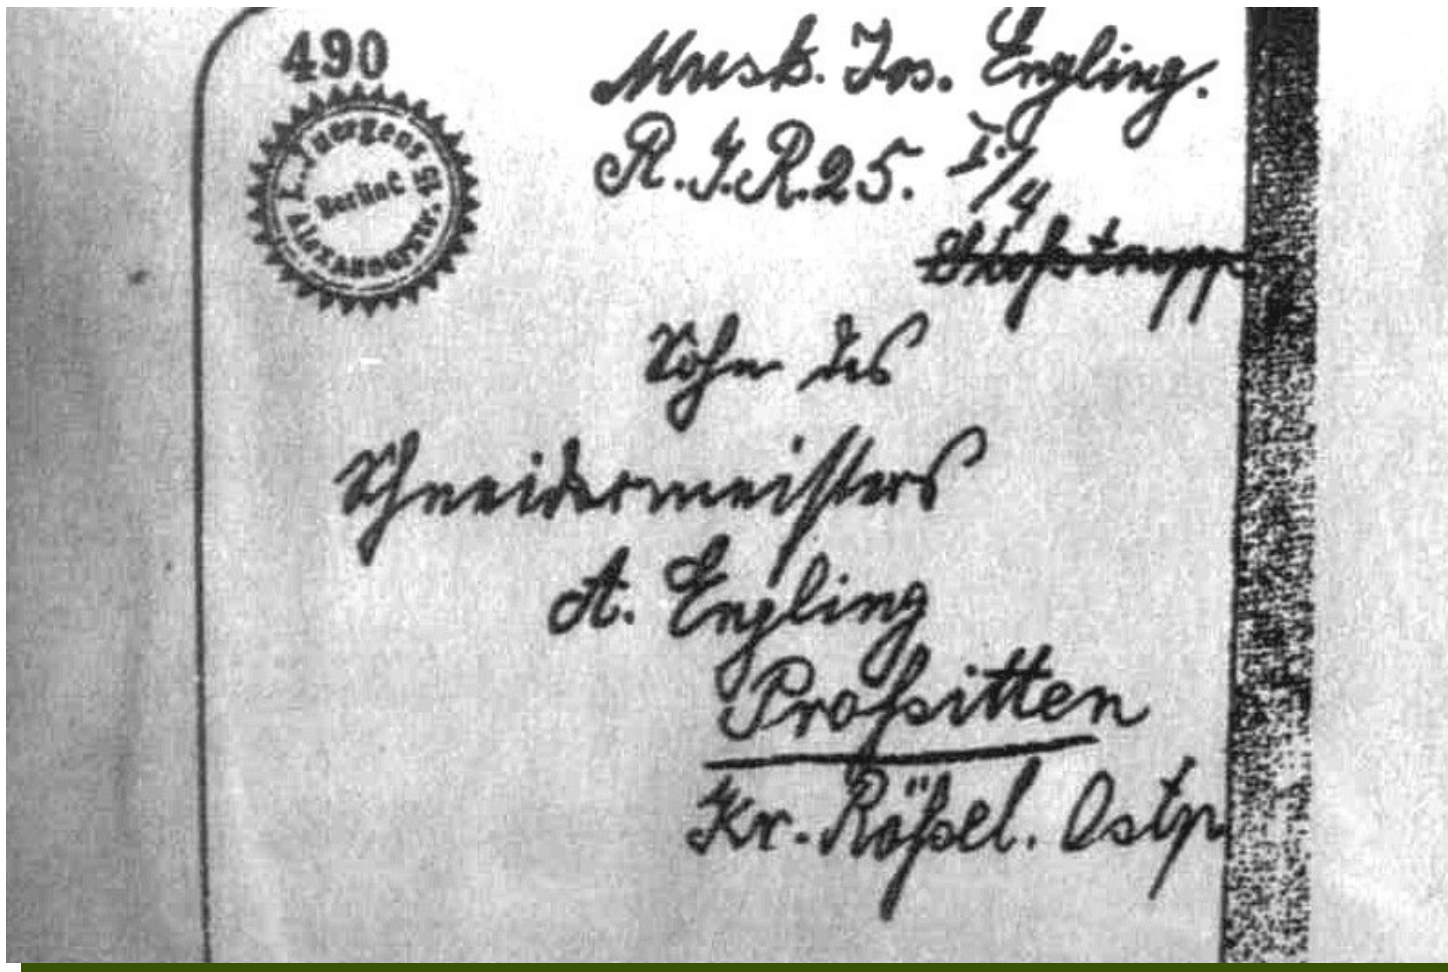 490
L. Juergens
Berlin C
Alexanderstr.
Musk. Jos. Engling.
R.I.R.25. I./4
Stoßtrupp
Sohn des
Schneidermeisters
A. Engling
Proßitten
Kr. Rößel. Ostp